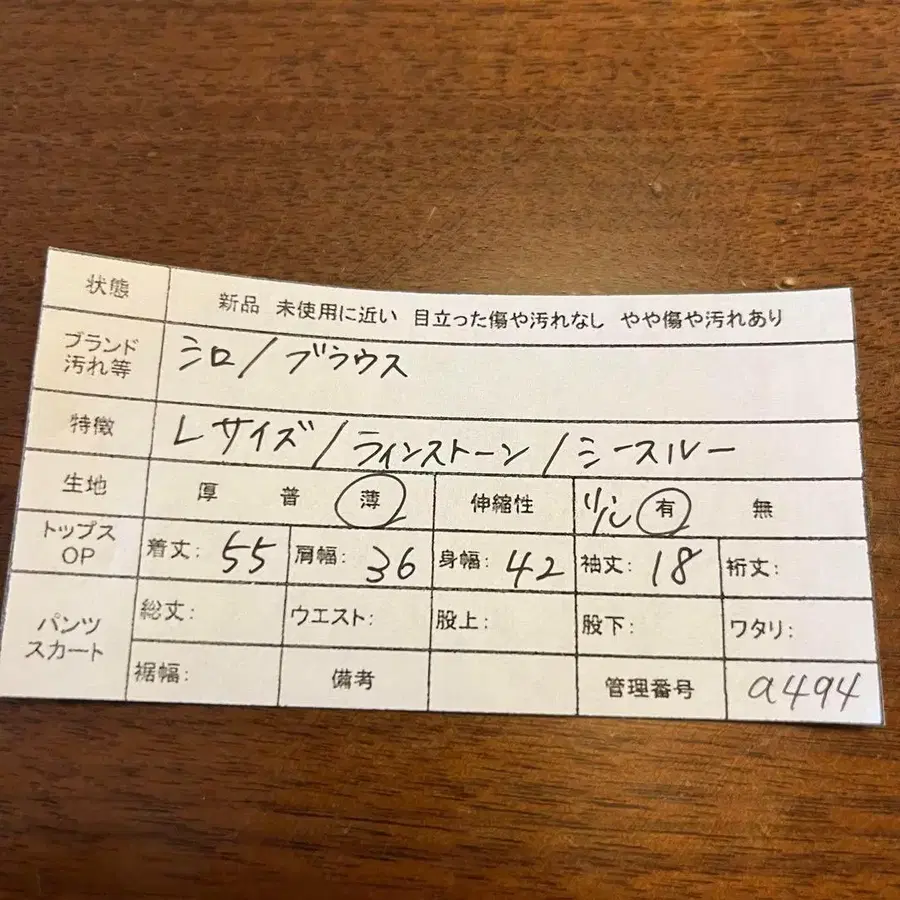 状態 新品 未使用に近い 目立った傷や汚れなし やや傷や汚れあり
ブランド 汚れ等 シロ/ブラウス
特徴 Lサイズ/ラインストーン/シースルー
生地 厚 普 薄 伸縮性 少し 有 無
トップス OP 着丈: 55 肩幅: 36 身幅: 42 袖丈: 18 裄丈:
パンツ スカート 総丈: ウエスト: 股上: 股下: ワタリ:
裾幅: 備考 管理番号 a494